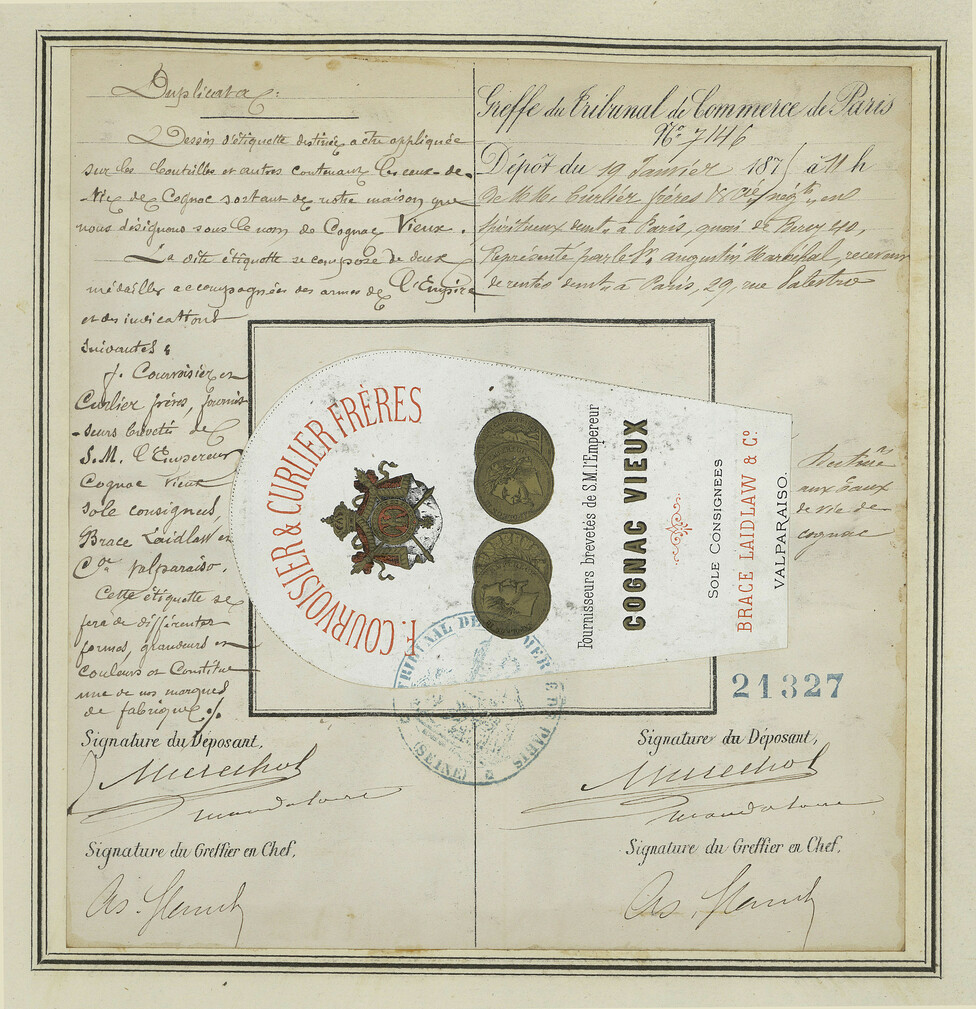 Duplicata :
Dessin d'étiquette destinée a être appliquée
sur les bouteilles et autres contenant les eaux-de-
-Vie de Cognac sortant de notre maison que
nous désignons sous le nom de Cognac Vieux.
La dite étiquette se compose de deux
médailles accompagnées des armes de l'Empire
et des indications
suivantes :
f. Courvoisier et
Curlier frères, fournis
-seurs brevetés de
S.M. l'Empereur
Cognac Vieux
sole consignees,
Brace Laidlaw et
Cie Valparaiso.
Cette étiquette se
fera de différentes
formes, grandeurs et
couleurs et constitue
une de nos marques
de fabrique ./.
Signature du Déposant,
Marechal
mandataire
Signature du Greffier en Chef,
Greffe du Tribunal de Commerce de Paris
No 7146
Dépôt du 19 Janvier 1875 à 11 h
De MM. Curlier frères & Cie, négts en
spiritueux demt à Paris, quai de Bercy 40,
Représenté par le Sr. augustin Maréchal, receveur
de rentes demt à Paris, 29, rue Palestro
F. COURVOISIER & CURLIER FRÈRES
Fournisseurs brevetés de S.M. l'Empereur
COGNAC VIEUX
SOLE CONSIGNEES
BRACE LAIDLAW & Co
VALPARAISO.
Destinée
aux Eaux
de vie de
cognac
TRIBUNAL DE COMMERCE DE PARIS
(SEINE)
21327
Signature du Déposant,
Marechal
mandataire
Signature du Greffier en Chef,